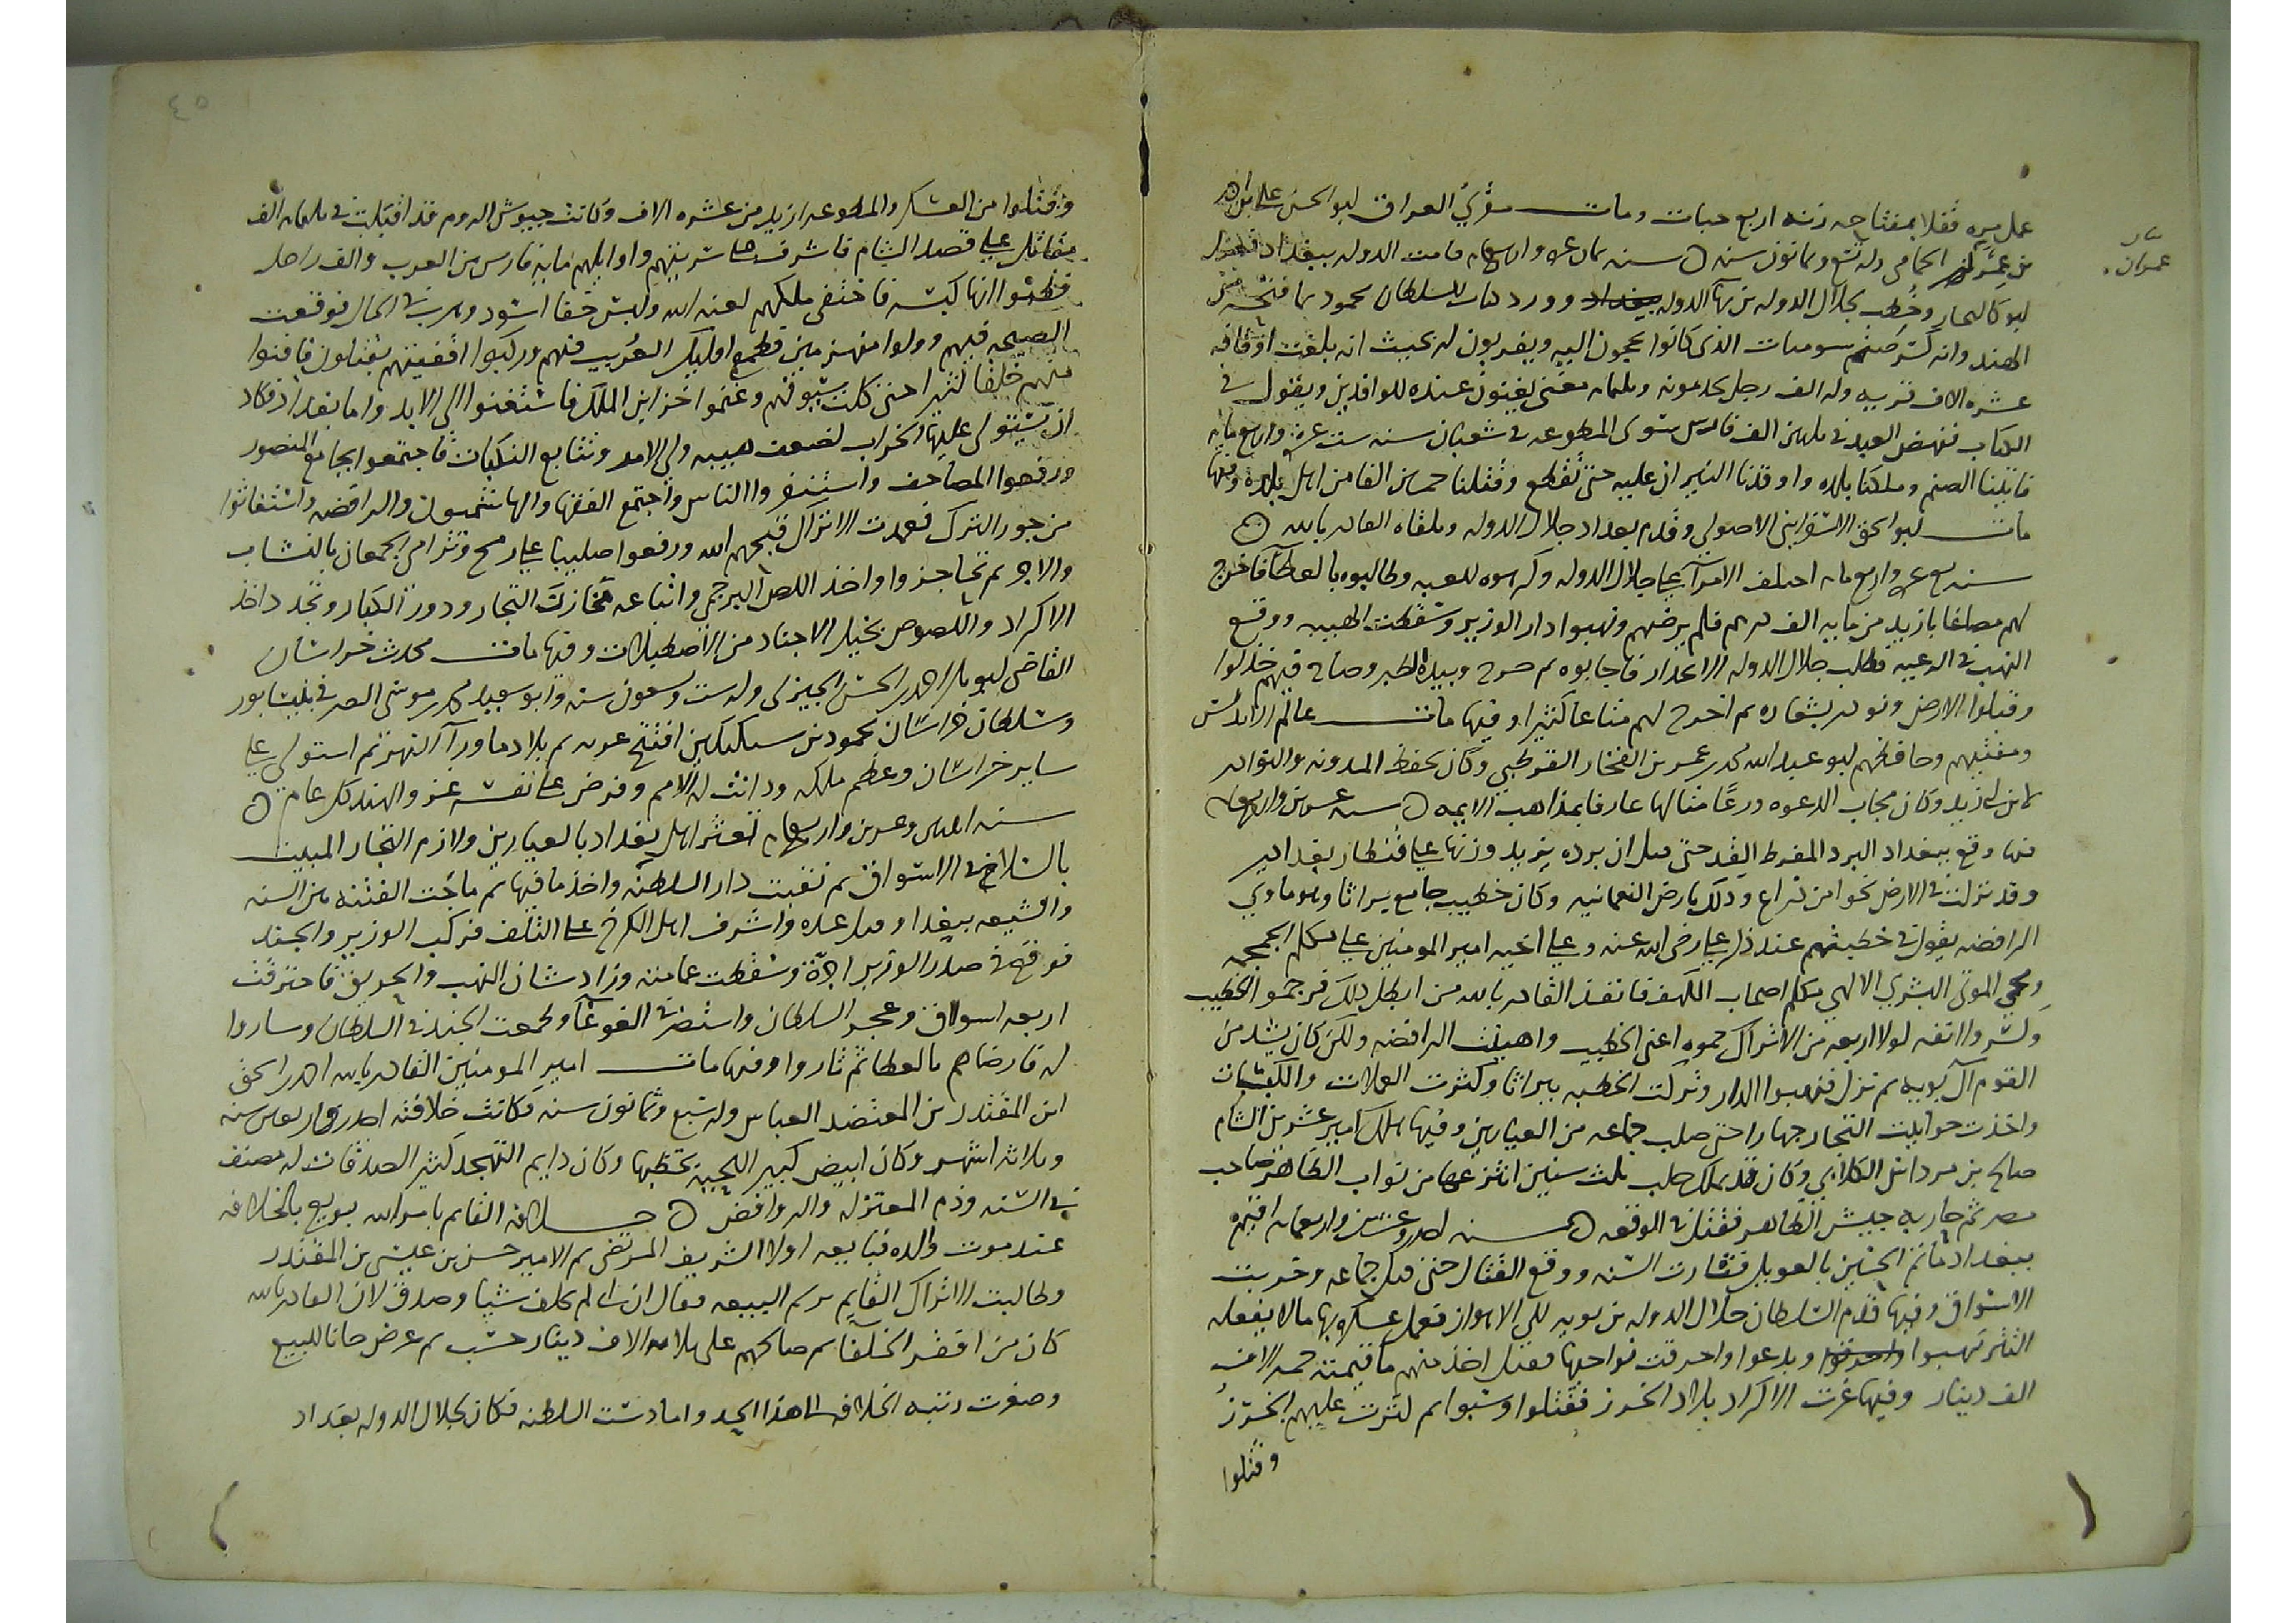 عمل مره قفلا بمفتاحه زنته اربع حبات ومات مقرئ العراق ابو الحسن علي بن احمد
بن عمر الحمامي وله تسع وثمانون سنه ه سنه ثمان عشره واربعمايه قامت الدوله ببغداد
ابو كاليجار وخطب لجلال الدوله بن بها الدوله وورد كتاب السلطان محمود بما فتحه من
الهند وانه كسر صنم سومنات الذي كانوا يحجون اليه ويقربون له بحيث انه بلغت اوقافه
عشره الاف قريه وله الف رجل يخدمونه وثلثمايه مغني يغنون عنده للوافدين ويقول في
الكتاب فنهض العبد في ثلثين الف فارس سوى المطوعه في شعبان سنه ست عشره واربع مايه
فاتينا الصنم وملكنا بلده واوقدنا النيران عليه حتى تقطع وقتلنا خمسين الفا من اهل بلده وفيها
مات ابو اسحق الاسفرايني الاصولي وقدم بغداد جلال الدوله وتلقاه القادر بالله ه
سنه تسع عشره واربع مايه اختلف الامرا على جلال الدوله وكرهوه للعبه وطالبوه بالعطا فاخرج
لهم مصاغا بازيد من مايه الف درهم فلم يرضهم ونهبوا دار الوزير وسقطت الهيبه ووقع
النهب في الرعيه فطلب جلال الدوله الانحدار فاجابوه ثم خرج وبيده الطبر وصاح فيهم فذلوا
وقبلوا الارض ونودي بشعاره ثم اخرج لهم متاعا كثيرا وفيها مات عالم الاندلس
ومفتيهم وحافظهم ابو عبد الله محمد بن عمر بن الفخار القرطبي وكان يحفظ المدونه والنوادر
لابن ابي زيد وكان مجاب الدعوه ورعا متالها عارفا بمذاهب الايمه ه سنه عشرين واربعمايه
فيها وقع ببغداد البرد المفرط القد حتى قيل ان برده يزيد وزنها على قنطار بغدادي
وقد نزلت في الارض نحوا من ذراع وذلك بارض النعمانيه وكان خطيب جامع براثا وهو ماوي
الرافضه يقول في خطبتهم عند ذكر علي رضي الله عنه وعلى اخيه امير المومنين علي مكلم الجمجمه
ومحيي الموتى البشري الالهي مكلم اصحاب الكهف فانفذ القادر بالله من ابطل ذلك فرجموا الخطيب
وكسروا انفه لولا اربعه من الاتراك حموه اعني الخطيب واهينت الرافضه ولكن كان يشد من
القوم آل بويه ثم نزل فنهبوا الدار وتركت الخطبه ببراثا وكثرت العملات والكبسات
واخذت حوانيت التجار جهارا حتى صلب جماعه من العيارين وفيها هلك امير عرب الشام
صالح بن مرداس الكلابي وكان قد تملك حلب ثلث سنين انتزعها من نواب الظاهر صاحب
مصر ثم حاربه جيش الظاهر فقتل في الوقعه ه سنه احدى وعشرين واربعمايه اقيم
ببغداد ماتم الحسين بالعويل فثارت السنه ووقع القتال حتى قتل جماعه وخربت
الاسواق وفيها قدم السلطان جلال الدوله بن بويه الى الاهواز فعمل عسكره بها مالا يفعله
التتر نهبوا وبدعوا واحرقت نواحيها فقيل اخذ منهم ما قيمته خمسه الاف
الف دينار وفيها غزت الاكراد بلاد الخزر فقتلوا وسبوا ثم كرت عليهم الخزر
وقتلوا
٤٥
وقتلوا من العسكر والمطوعه ازيد من عشره الاف وكانت جيوش الروم قد اقبلت في ثلثمايه الف
مقاتل على قصد الشام فاشرف على سريتهم واوايلهم مايه فارس من العرب والف راجل
فظنوا انها كبسه فاختفى ملكهم لعنه الله ولبس خفا اسود وهرب في الحال فوقعت
الصيحه فيهم وولوا منهزمين فطمع اوليك العرب فيهم وركبوا اقفيتهم يقتلون فافنوا
منهم خلقا كثيرا حتى كلت سيوفهم وغنموا خزاين الملك فاستغنوا الى الابد واما بغداد فكاد
ان يستولي عليها الخراب لضعف هيبه ولي الامر وتتابع النكبات فاجتمعوا بجامع المنصور
ورفعوا المصاحف واستنفروا الناس واجتمع الفقها والهاشميون والرافضه واستغاثوا
من جور الترك فعمدت الاتراك قبحهم الله ورفعوا صليبا على رمح وترامى الجمعان بالنشاب
والاجر ثم تحاجزوا واخذ اللص البرجمي واتباعه مخازن التجار ودور الكبار ونجد واخذ
الاكراد واللصوص خيل الاجناد من الاصطبلات وفيها مات محدث خراسان
القاضي ابو بكر احمد بن الحسن الحيري وله ست وتسعون سنه وابو سعيد محمد بن موسى الصيرفي بنيسابور
وسلطان خراسان محمود بن سبكتكين افتتح غزنه ثم بلاد ما ورا النهر ثم استولى على
ساير خراسان وعظم ملكه ودانت له الامم وفرض على نفسه غزو الهند كل عام ه
سنه اثنتين وعشرين واربعمايه تعثر اهل بغداد بالعيارين ولازم التجار المبيت
بالسلاح في الاسواق ثم نقبت دار السلطنه واخذ ما فيها ثم هاجت الفتنه بين السنه
والشيعه ببغداد وقتل عده واشرف اهل الكرخ على التلف فركب الوزير والجند
فوقع في صدر الوزير اجرة وسقطت عمامته وزاد شان النهب والحريق فاحترقت
اربعه اسواق وعجز السلطان واستضرت الغوغا وطمعت الجند في السلطان وساروا
له فارضاهم بالعطا ثم ثاروا وفيها مات امير المومنين القادر بالله احمد بن اسحق
ابن المقتدر بن المعتضد العباس وله سبع وثمانون سنه فكانت خلافته احدى واربعين سنه
وثلاثه اشهر وكان ابيض كبير اللحيه يخضبها وكان دايم التهجد كثير الصدقات له مصنف
في السنه وذم المعتزله والروافض ه خلافه القايم بامر الله بويع بالخلافه
عند موت والده فبايعه اولا الشريف المرتضى ثم الامير حسن بن عيسى بن المقتدر
وطالبت الاتراك القايم برسم البيعه فقال ان ابي لم يخلف شيا وصدق لان القادر بالله
كان من افقر الخلفا ثم صالحهم على ثلاثه الاف دينار حسب ثم عرض خانا للبيع
وصغرت رتبه الخلافه الى هذا الحد واما دست السلطنه فكان لجلال الدوله بغداد